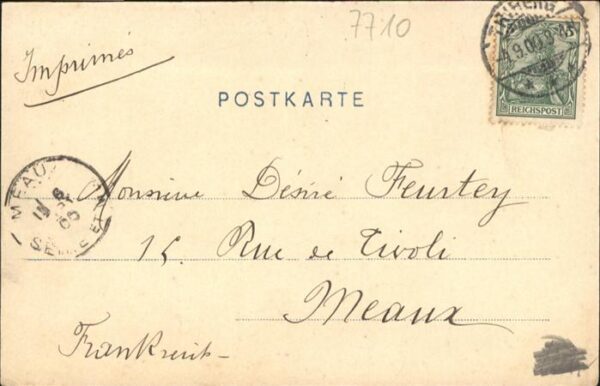 7710
TRIBERG
4.9.00.
5
REICHSPOST
Imprimés
POSTKARTE
MEAUX
SEINE ET M
Monsieur Désiré Feurtey
15. Rue de Tivoli
Meaux
Frankreich